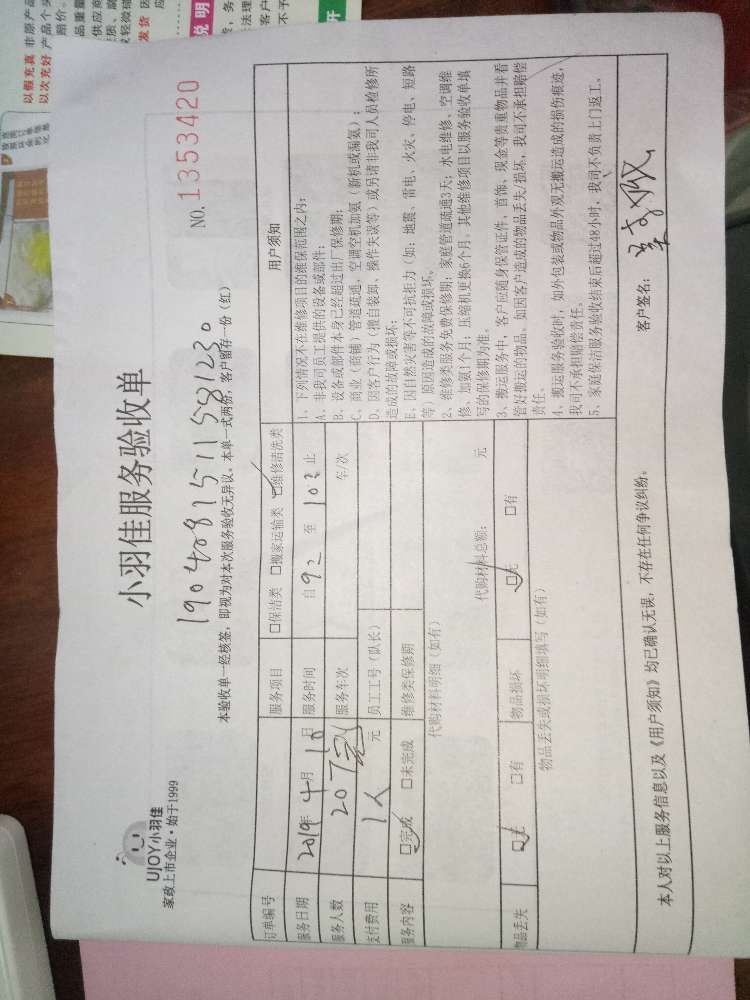 小羽佳服务验收单
UJOY小羽佳
家政上市企业·始于1999
NO. 1353420
本验收单一经核签，即视为对本次服务验收无异议。本单一式两份，客户留存一份（红）
订单编号
服务项目 □保洁类 □搬家运输类 ☑维修清洗类
服务日期 2019年4月10日 服务时间 自 9 至 10 止
服务人数 服务车次 车/次
支付费用 元 员工工号（队长）
服务内容 ☑完成 □未完成 维修类保修期
代购材料明细（如有）
代购材料总额： 元
物品丢失 ☑无 □有 物品损坏 ☑无 □有
物品丢失或损坏明细填写（如有）
用户须知
1、下列情况不在维修项目的维保范围之内：
A、非我司员工提供的设备或部件；
B、设备或部件本身已经超过出厂保修期；
C、商业（商铺）管道疏通、空调空机加氨（新机或漏氨）；
D、因客户行为（擅自装卸、操作失误等）或另请非我司人员检修所
造成的故障或损坏。
E、因自然灾害等不可抗拒力（如：地震、雷电、火灾、停电、短路
等）原因造成的故障或损坏。
2、维修类服务免费保修期：家庭管道疏通3天；水电维修、空调维
修、加氨1个月；压缩机更换6个月，其他维修项目以服务验收单填
写的保修期为准。
3、搬运服务中，客户应随身保管证件、首饰、现金等贵重物品并看
管好搬运的物品。如因客户造成的物品丢失/损坏，我司不承担赔偿
责任。
4、搬运服务验收时，如外包装或物品外观无搬运造成的损伤痕迹，
我司不承担赔偿责任。
5、家庭保洁服务验收结束后超过48小时，我司不负责上门返工。
本人对以上服务信息以及《用户须知》均已确认无误，不存在任何争议纠纷。
客户签名：
以假充真
以次充好
发货
说明